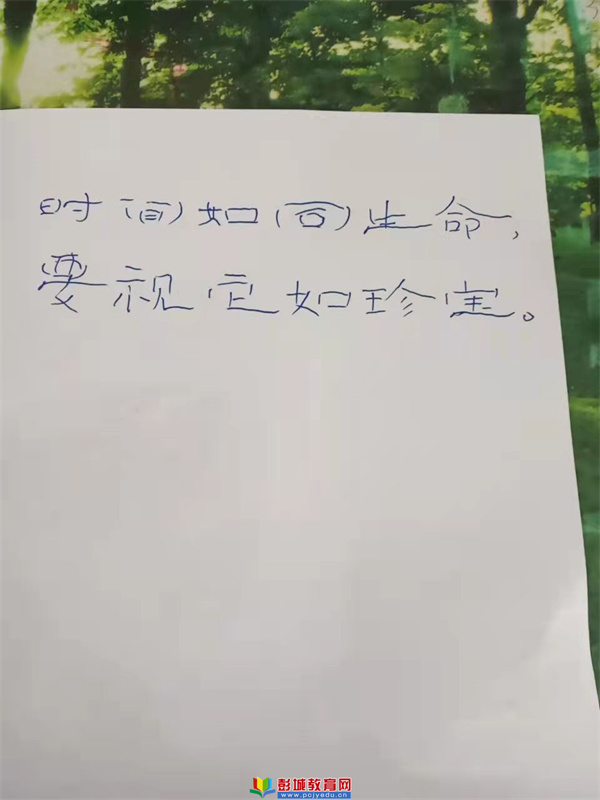 时间如同生命，
要视它如珍宝。
彭城教育网
www.pcjyedu.cn